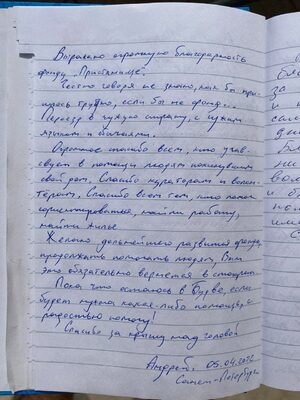 Выражаю огромную благодарность
фонду "Пристанище".
Честно говоря не знаю, как бы при-
шлось трудно, если бы не фонд.
Переезд в чужую страну, с чужим
языком и обычаями.
Огромное спасибо всем, кто учав-
ствует в помощи людям покинувшим
свой дом. Спасибо кураторам и волон-
тёрам. Спасибо всем тем, кто помог
сориентироваться, найти работу,
найти жильё
Желаю дальнейшего развития фонду,
продолжать помогать людям, Вам
это обязательно вернется в сторицу.
Пока что остаюсь в если
будет нужна какая-либо помощь, с
радостью помогу!
Спасибо за крышу над головой
Андрей, 05.04.2022
Санкт-Петербург